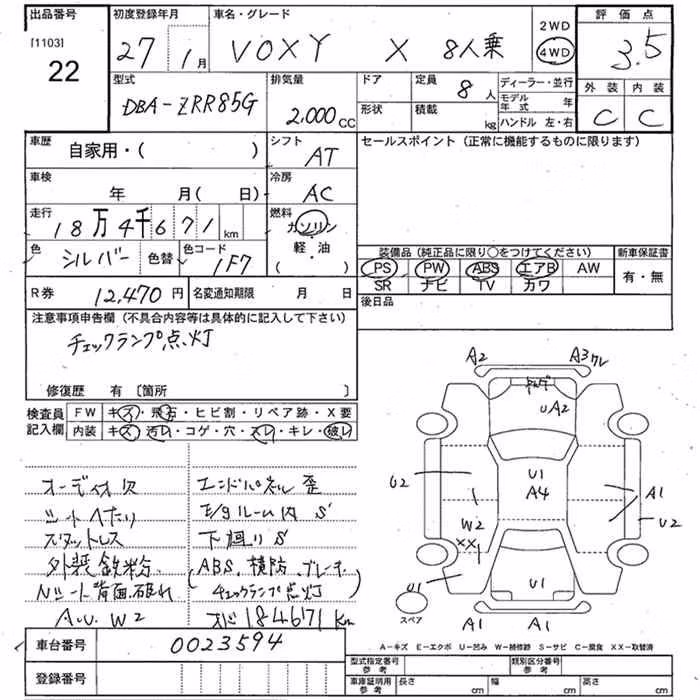 出品番号 初度登録年月 車名・グレード 評価点
[1103] 22
27年 1月 VOXY X 8人乗 2WD 4WD 3.5
型式 排気量 ドア 定員 ディーラー・並行 外装 内装
DBA-ZRR85G 2,000cc 8人 モデル年式 年 C C
形状 積載 kg ハンドル 左・右
車歴 自家用・( ) シフト AT セールスポイント (正常に機能するものに限ります)
車検 年 月(日) 冷房 AC
走行 18万4千671km 燃料 ガソリン・軽・油 ( )
色 シルバー 色替 色コード 1F7
装備品 (純正品に限り○をつけてください) 新車保証書
PS PW ABS エアB AW 有・無
SR ナビ TV カワ
R券 12,470円 名変通知期限 月 日 後日品
注意事項申告欄 (不具合内容等は具体的に記入して下さい)
チェックランプ点灯
修復歴 有 〔箇所 〕
検査員記入欄 FW キズ・飛石・ヒビ割・リペア跡・X要
内装 キズ・汚レ・コゲ・穴・スレ・キレ・破レ
オーディオ欠 エンドパネル歪
シートヘたり E/gルーム内 S
スタットレス 下廻り S
外装鉄粉 (ABS、横防、ブレーキ
Nシート背面破れ チェックランプ点灯
A.U.W2 184671km
A2 A3ワレ
UA2
U1
U2 A4 A1
W2 U2
XX
U1 U1
スペア A1 A1
A-キズ E-エクボ U-凹み W-補修跡 S-サビ C-腐食 XX-取替済
車台番号 0023594 型式指定番号 参考 類別区分番号 参考
登録番号 車庫証明用 参考 長さ cm 幅 cm 高さ cm